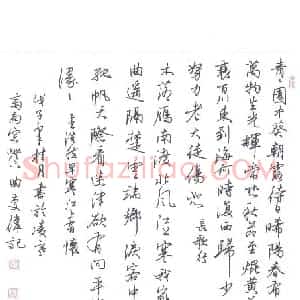 青〻園中葵朝露待日晞陽春布
萬物生光輝常恐秋節至焜黃
衰百川東到海何時復西歸少
努力老大徒傷悲 長歌行
木落雁南度北風江上寒我家
曲遙隔楚雲端鄉淚客中
孤帆天際看迷津欲有問平
漫〻 孟浩然早寒江上有懷
戊子 書於
高 記
Shufaziliao.com